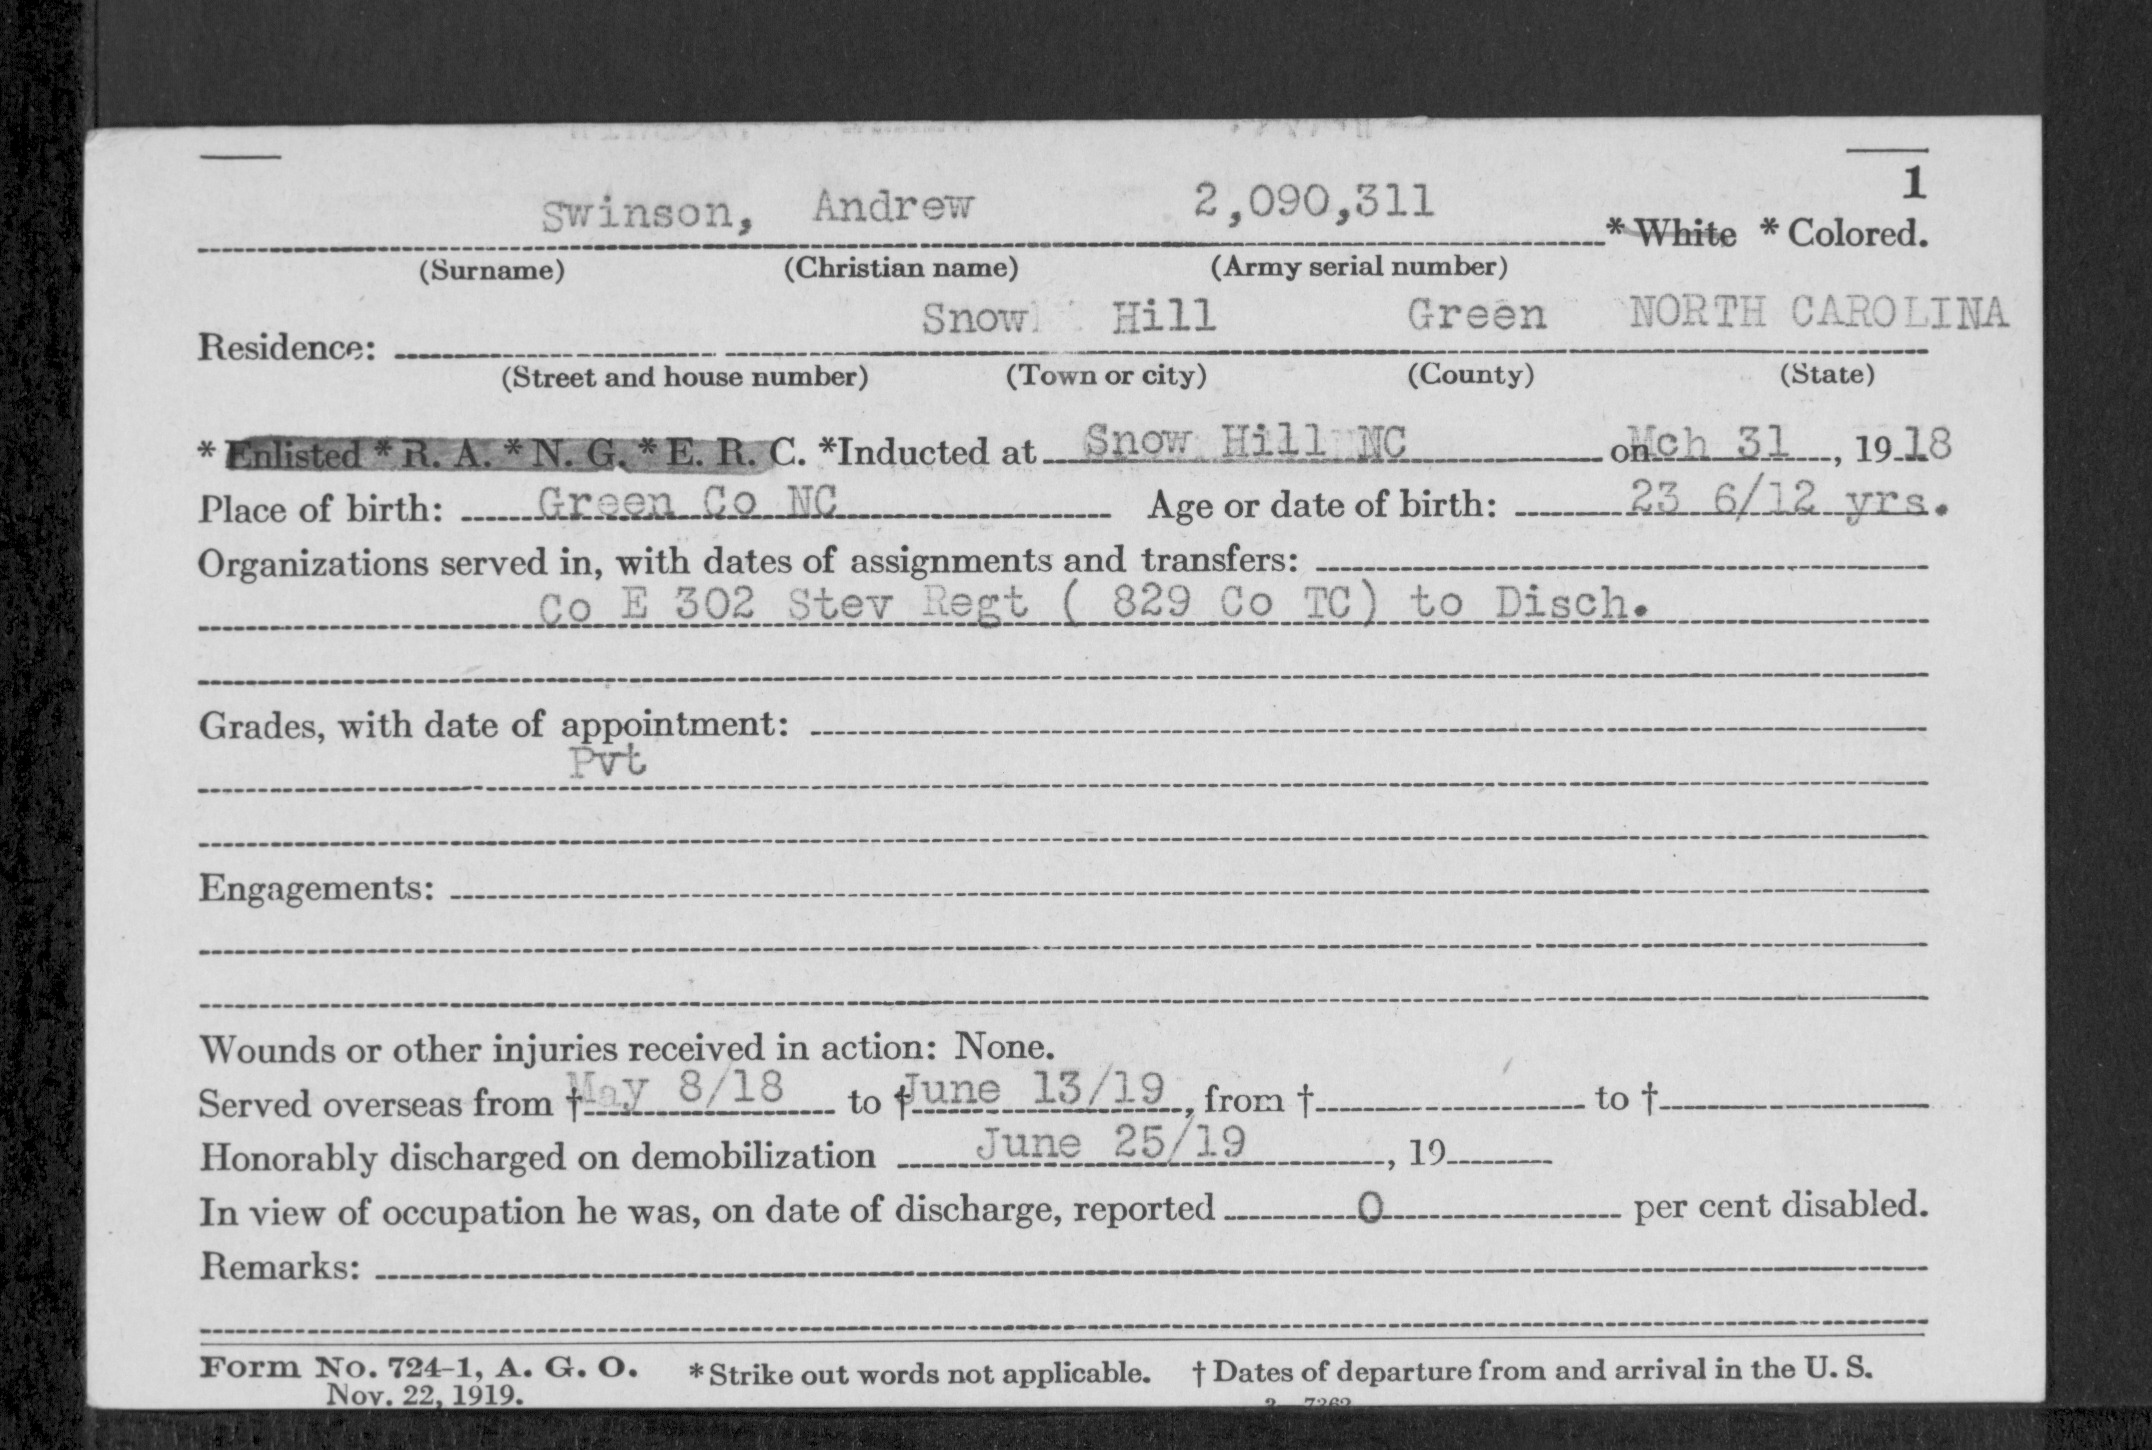 1
Swinson, Andrew 2,090,311 * White * Colored.
(Surname) (Christian name) (Army serial number)
Snow Hill Green NORTH CAROLINA
Residence:
(Street and house number) (Town or city) (County) (State)
* Enlisted * R. A. * N. G. * E. R. C. *Inducted at Snow Hill NC on Mch 31, 1918
Place of birth: Green Co NC Age or date of birth: 23 6/12 yrs.
Organizations served in, with dates of assignments and transfers:
Co E 302 Stev Regt ( 829 Co TC) to Disch.
Grades, with date of appointment:
Pvt
Engagements:
Wounds or other injuries received in action: None.
Served overseas from † May 8/18 to † June 13/19, from † to †
Honorably discharged on demobilization June 25/19, 19
In view of occupation he was, on date of discharge, reported 0 per cent disabled.
Remarks:
Form No. 724-1, A. G. O. * Strike out words not applicable. † Dates of departure from and arrival in the U. S.
Nov. 22, 1919.